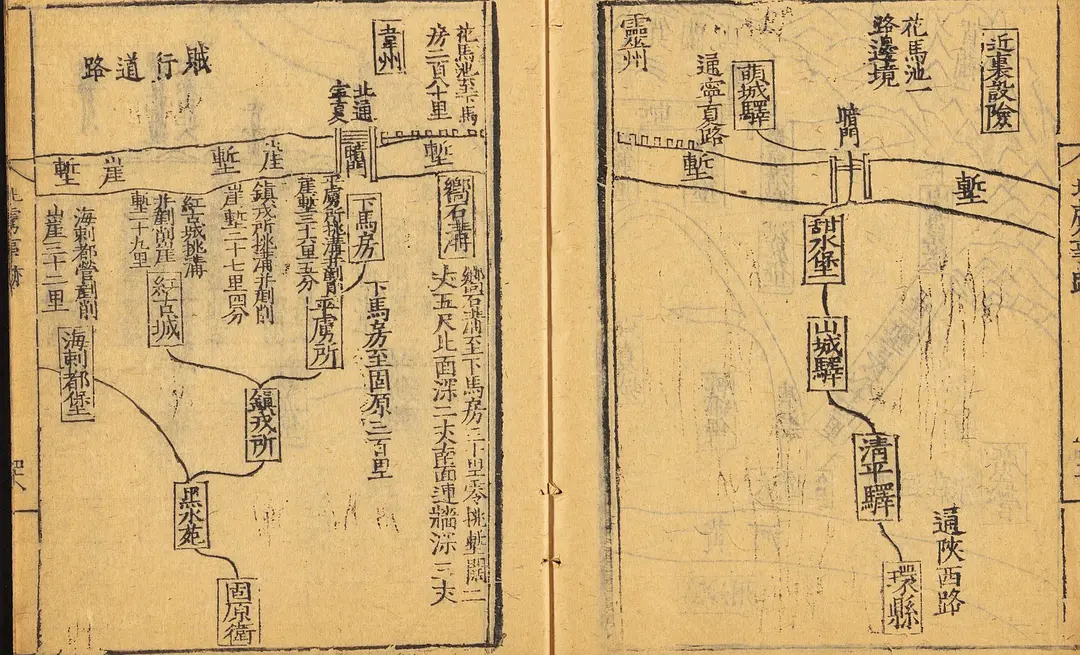 近裏設險
花馬池一
路邊境
暗門
萌城驛
通寧夏路
靈州
塹
塹
甜水堡
山城驛
清平驛
環縣
通陜西路
花馬池至下馬
房二百八十里
韋州
北通
寧夏
賊行道路
塹
暗門
崖
塹
崖
塹
嚮石溝
嚮石溝至下馬房三十里零挑塹闊二
丈五尺北面深二丈南面連牆深三丈
下馬房
下馬房至固原三百里
平虜所挑溝並剷
崖塹三十六里五分
平虜所
鎮戎所挑溝并剷削
崖塹二十七里四分
鎮戎所
紅古城挑溝
并剷削崖
塹二十九里
紅古城
海剌都營剷削
山崖三十二里
海剌都堡
黑水苑
固原衛